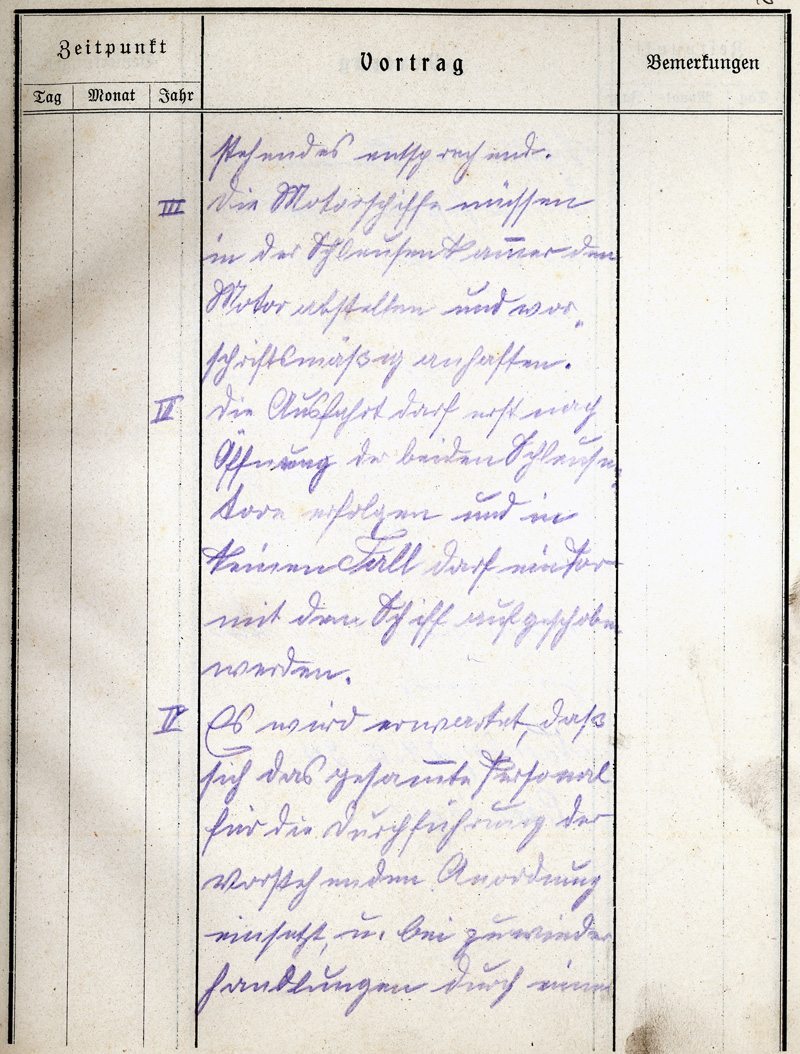 Zeitpunkt
Vortrag
Bemerkungen
Tag Monat Jahr
stehendes entsprechend.
III Die Motorschiffe müssen
in der Schleusenkam̅er den
Motor abstellen und vor„
schriftsmäßig anhaften.
IV Die Ausfahrt darf erst nach
Öffnung der beiden Schleusen„
tore erfolgen und in
keinen Fall darf ein Tor
mit den Schiff aufgeschoben
werden.
IV Es wird erwartet, daß
sich das gesam̅te Personal
für die Durchführung der
Vorstehenden Anordnung
einsetzt, u. bei zuwieder
handlungen durch einen